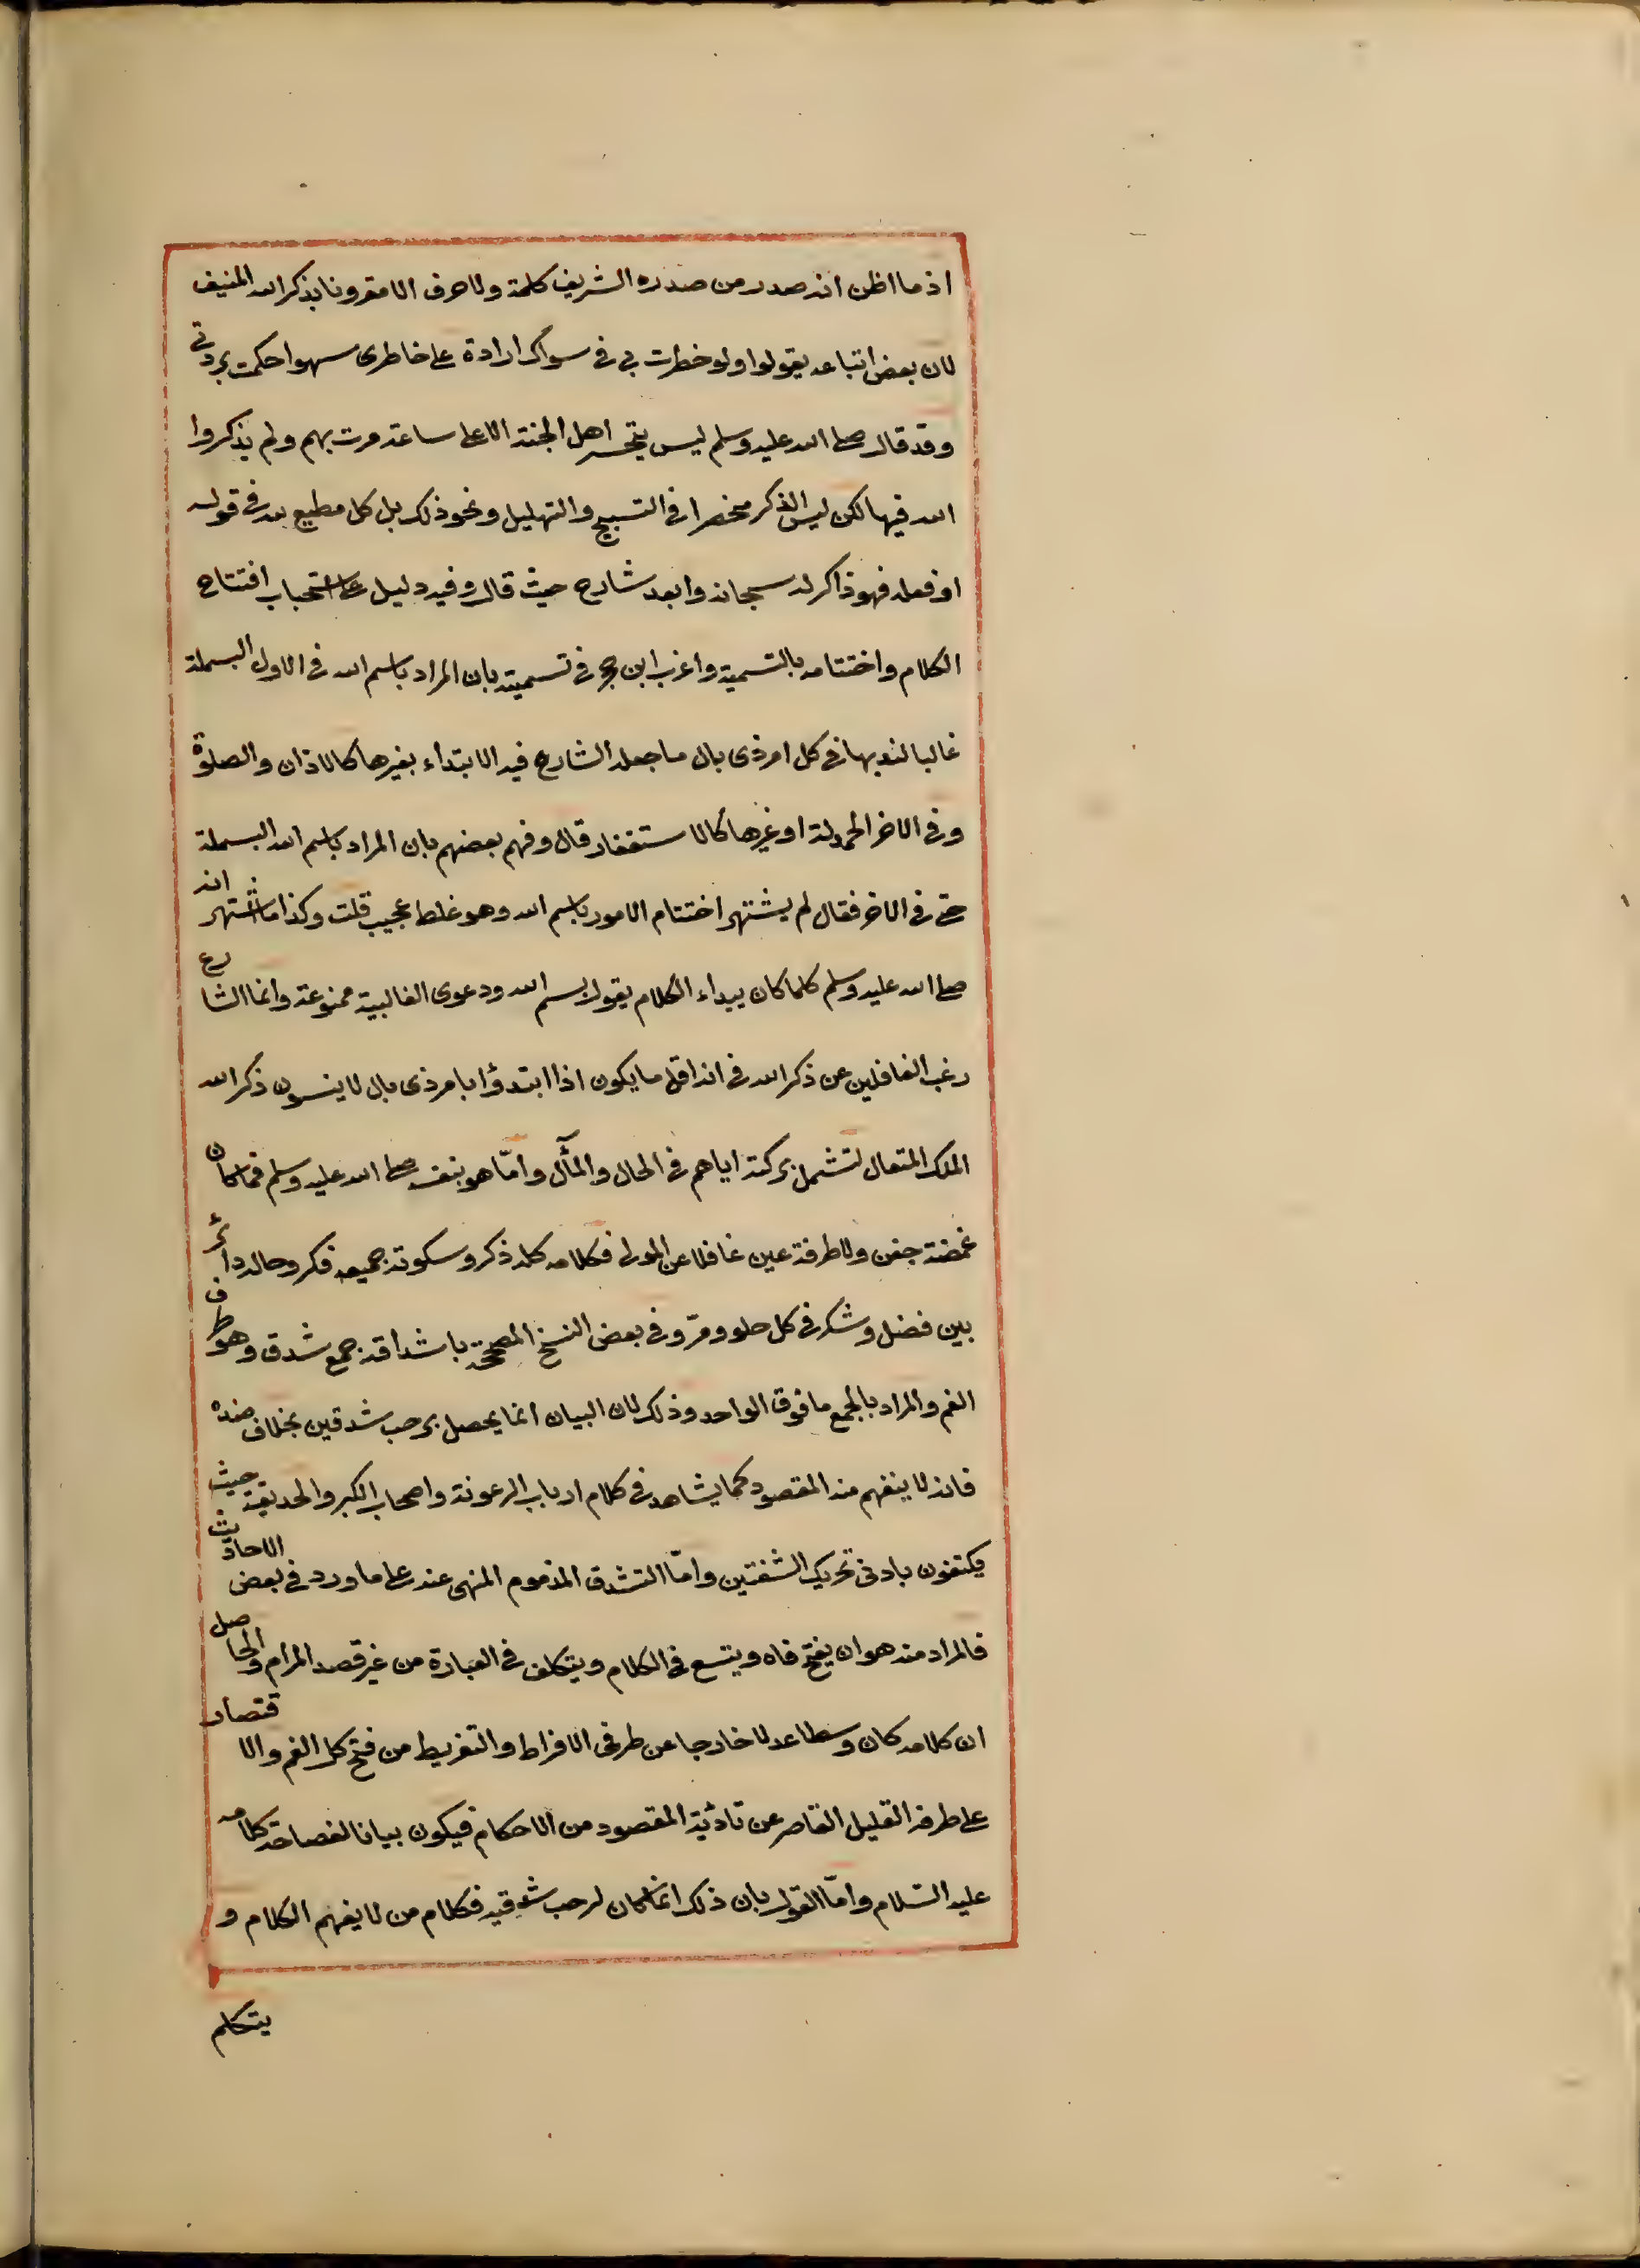 اذ ما اظن انه صدر من صدره الشريف كلمة ولا حرف الا مقرونا بذكر الله المنيف
لان بعض اتباعه يقولوا ولو خطرت بي في سواك ارادة على خاطرى سهوا حكمت بردتي
وقد قال صلى الله عليه وسلم ليس يتحسر اهل الجنة الا على ساعة مرت بهم ولم يذكروا
الله فيها لكن ليس الذكر منحصرا في التسبيح والتهليل ونحو ذلك بل كل مطيع لله في قوله
او فعله فهو ذاكر له سبحانه وابعد شارح حيث قال وفيه دليل على استحباب افتتاح
الكلام واختتامه بالتسمية واغرب ابن حجر في تسميته بان المراد باسم الله في الاول البسملة
غالبا لندبها في كل امر ذى بال ما جعل الشارع فيه الابتداء بغيرها كالاذان والصلوة
وفي الاخر الحمدلة او غيرها كالاستغفار قال وفهم بعضهم بان المراد باسم الله البسملة
حتى في الاخر فقال لم يشتهر اختتام الامور باسم الله وهو غلط عجيب قلت وكذا ما اشتهر انه
صلى الله عليه وسلم كلما كان يبداء الكلام يقول بسم الله ودعوى الغالبية ممنوعة وانما الشارع
رغب الغافلين عن ذكر الله في انه اقل ما يكون اذا ابتدؤا بامر ذى بال لا ينسون ذكر الله
الملك المتعال لتشمل بركته اياهم في الحال والمأل وامّا هو بنفسه صلى الله عليه وسلم فما كان
غمضة جفن ولا طرفة عين غافلا عن المولى فكلامه كله ذكر وسكوته جميعه فكر وحاله دائر
بين فضل وشكر في كل حلو ومرّ وفي بعض النسخ المصححة باشداقه جمع شدق وهو طرف
الفم والمراد بالجمع ما فوق الواحد وذلك لان البيان انما يحصل برحب شدقين بخلاف ضده
فانه لا ينفهم منه المقصود كما يشاهد في كلام ارباب الرعونة واصحاب الكبر والحديقة حيث
يكتفون بادنى تحريك الشفتين وامّا التشدق المذموم المنهى عنه على ما ورد في بعض الاحاديث
فالمراد منه هو ان يفتح فاه ويتسع في الكلام ويتكلف في العبارة من غير قصد المرام والحاصل
ان كلامه كان وسطا عدلا خارجا عن طرفى الافراط والتفريط من فتح كل الفم والاقتصار
على طرفه القليل القاصر عن تادئية المقصود من الاحكام فيكون بيانا لفصاحة كلامه
عليه السّلام وامّا القول بان ذلك انما كان لرحب شدقيه فكلام من لا يفهم الكلام و
يتكلم